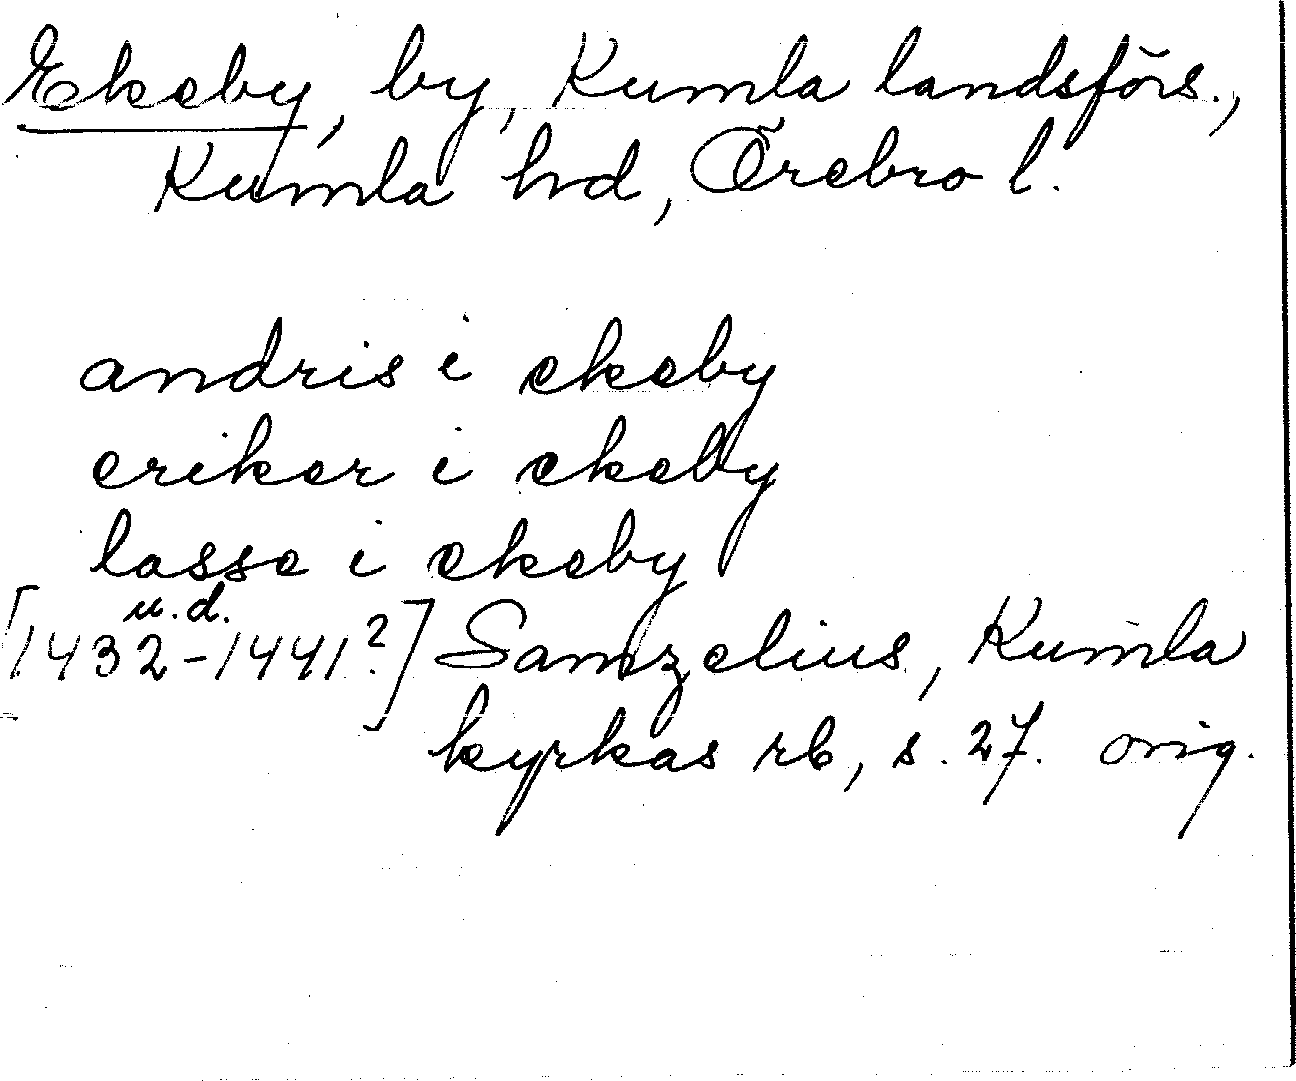 Ekeby, by, Kumla landsförs.,
Kumla hd, Örebro l.
andris i ekeby
eriker i ekeby
lasse i ekeby
u.d.
[1432-1441?] Samzelius, Kumla
kyrkas rb, s. 27. orig.